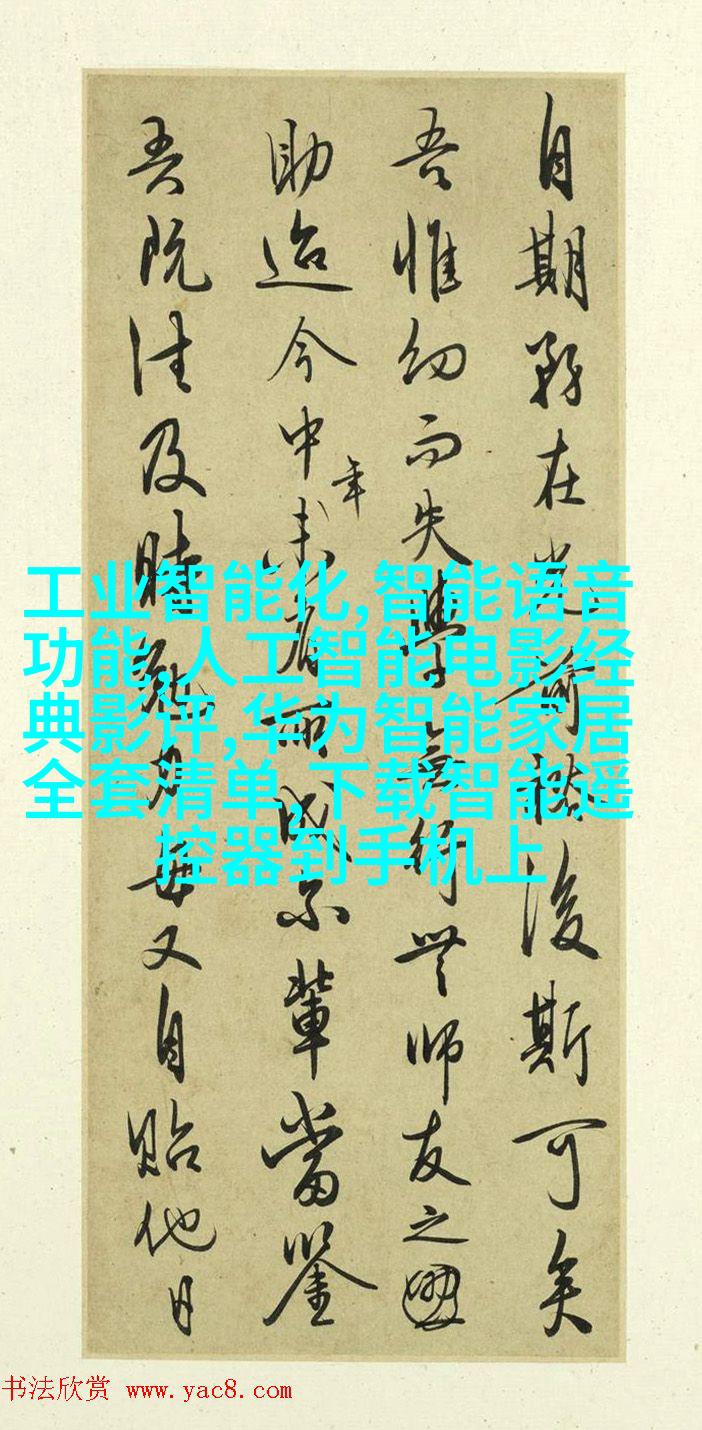 自期務在光前裕後斯可矣
吾惟幼而失學無行無師友之
助迨今中年未有所成尔輩當鑒
吾既往及時勉力毋又自貽他日
工业智能化,智能语音
功能,人工智能电影经
典影评,华为智能家居
全套清单,下载智能遥
控器到手机上
书法欣赏 www.yac8.com